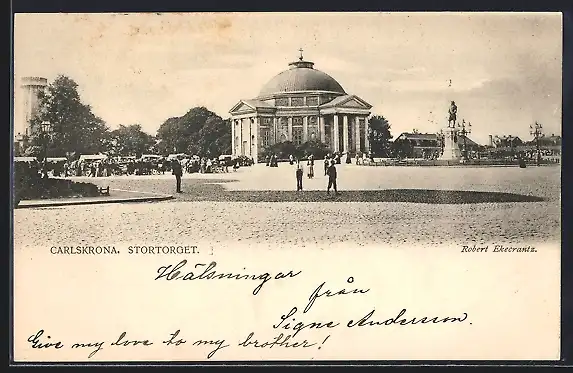 CARLSKRONA. STORTORGET.
Robert Ekecrantz.
Hälsningar
från
Signe Andersson.
Give my love to my brother!